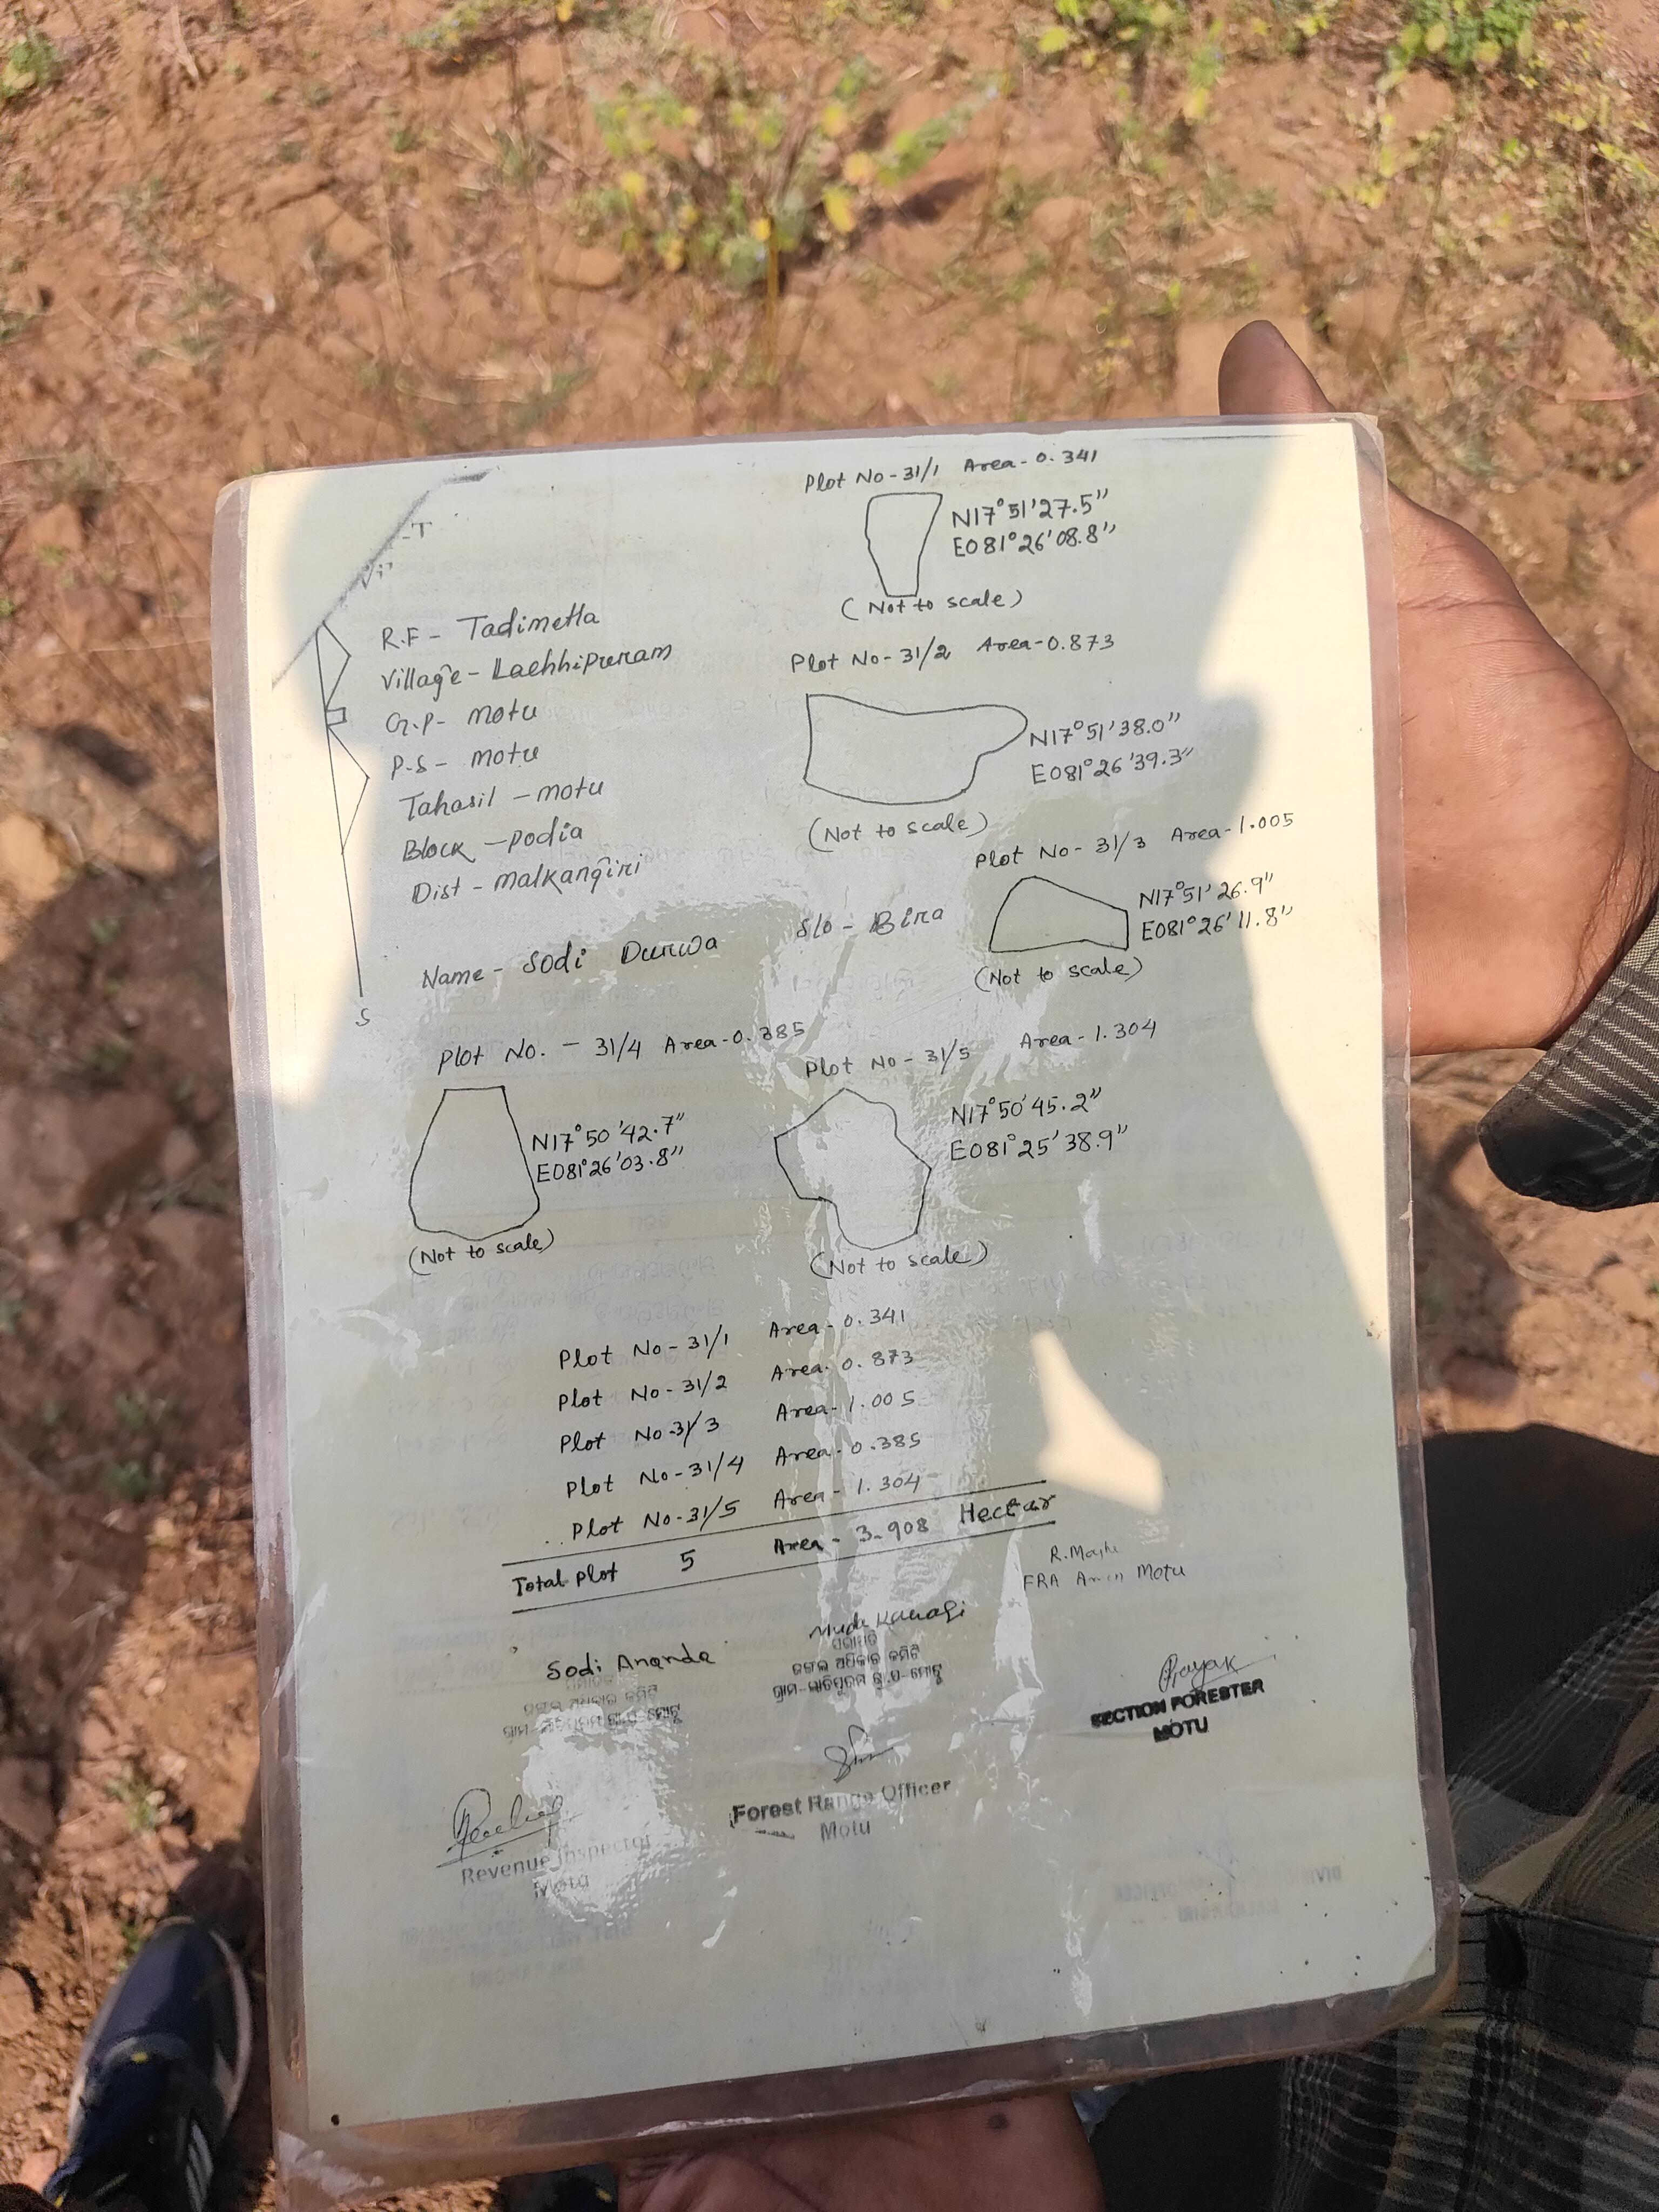 Plot No-31/1 Area-0.341
N17°51'27.5"
E081°26'08.8"
(Not to scale)
R.F- Tadimetla
Village- Lachhipuram
G.P- motu
P.S- motu
Tahasil -motu
Block -podia
Dist - malkangiri
Plot No-31/2 Area-0.873
N17°51'38.0"
E081°26'39.3"
(Not to scale)
Plot No- 31/3 Area-1.005
N17°51'26.9"
E081°26'11.8"
(Not to scale)
Name- Sodi Durwa S/o - Bira
S
Plot No. - 31/4 Area-0.385
N17°50'42.7"
E081°26'03.8"
(Not to scale)
Plot No-31/5 Area-1.304
N17°50'45.2"
E081°25'38.9"
(Not to scale)
Plot No-31/1 Area-0.341
Plot No-31/2 Area-0.873
Plot No-31/3 Area-1.005
Plot No-31/4 Area-0.385
Plot No-31/5 Area-1.304
Total plot 5 Area-3.908 Hectar
R.Majhi
FRA Amin Motu
Sodi Ananda
ଜଙ୍ଗଲ ଅଧିକାର କମିଟି
ସଭାପତି
ଜଙ୍ଗଲ ଅଧିକାର କମିଟି
SECTION FORESTER
MOTU
Forest Range Officer
Motu
Revenue Inspector
Motu